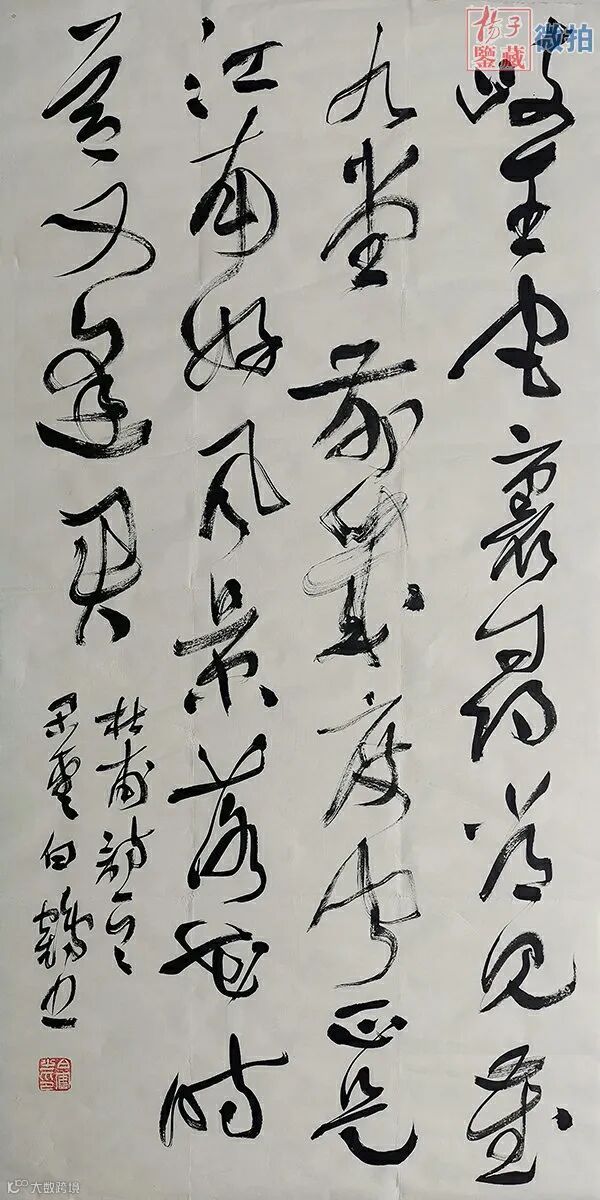 楊子
鑒藏 微拍
岐王宅裏尋常見崔
九堂前幾度聞正是
江南好風景落花時
節又逢君
杜甫詩
雲白鶴書
大数跨境